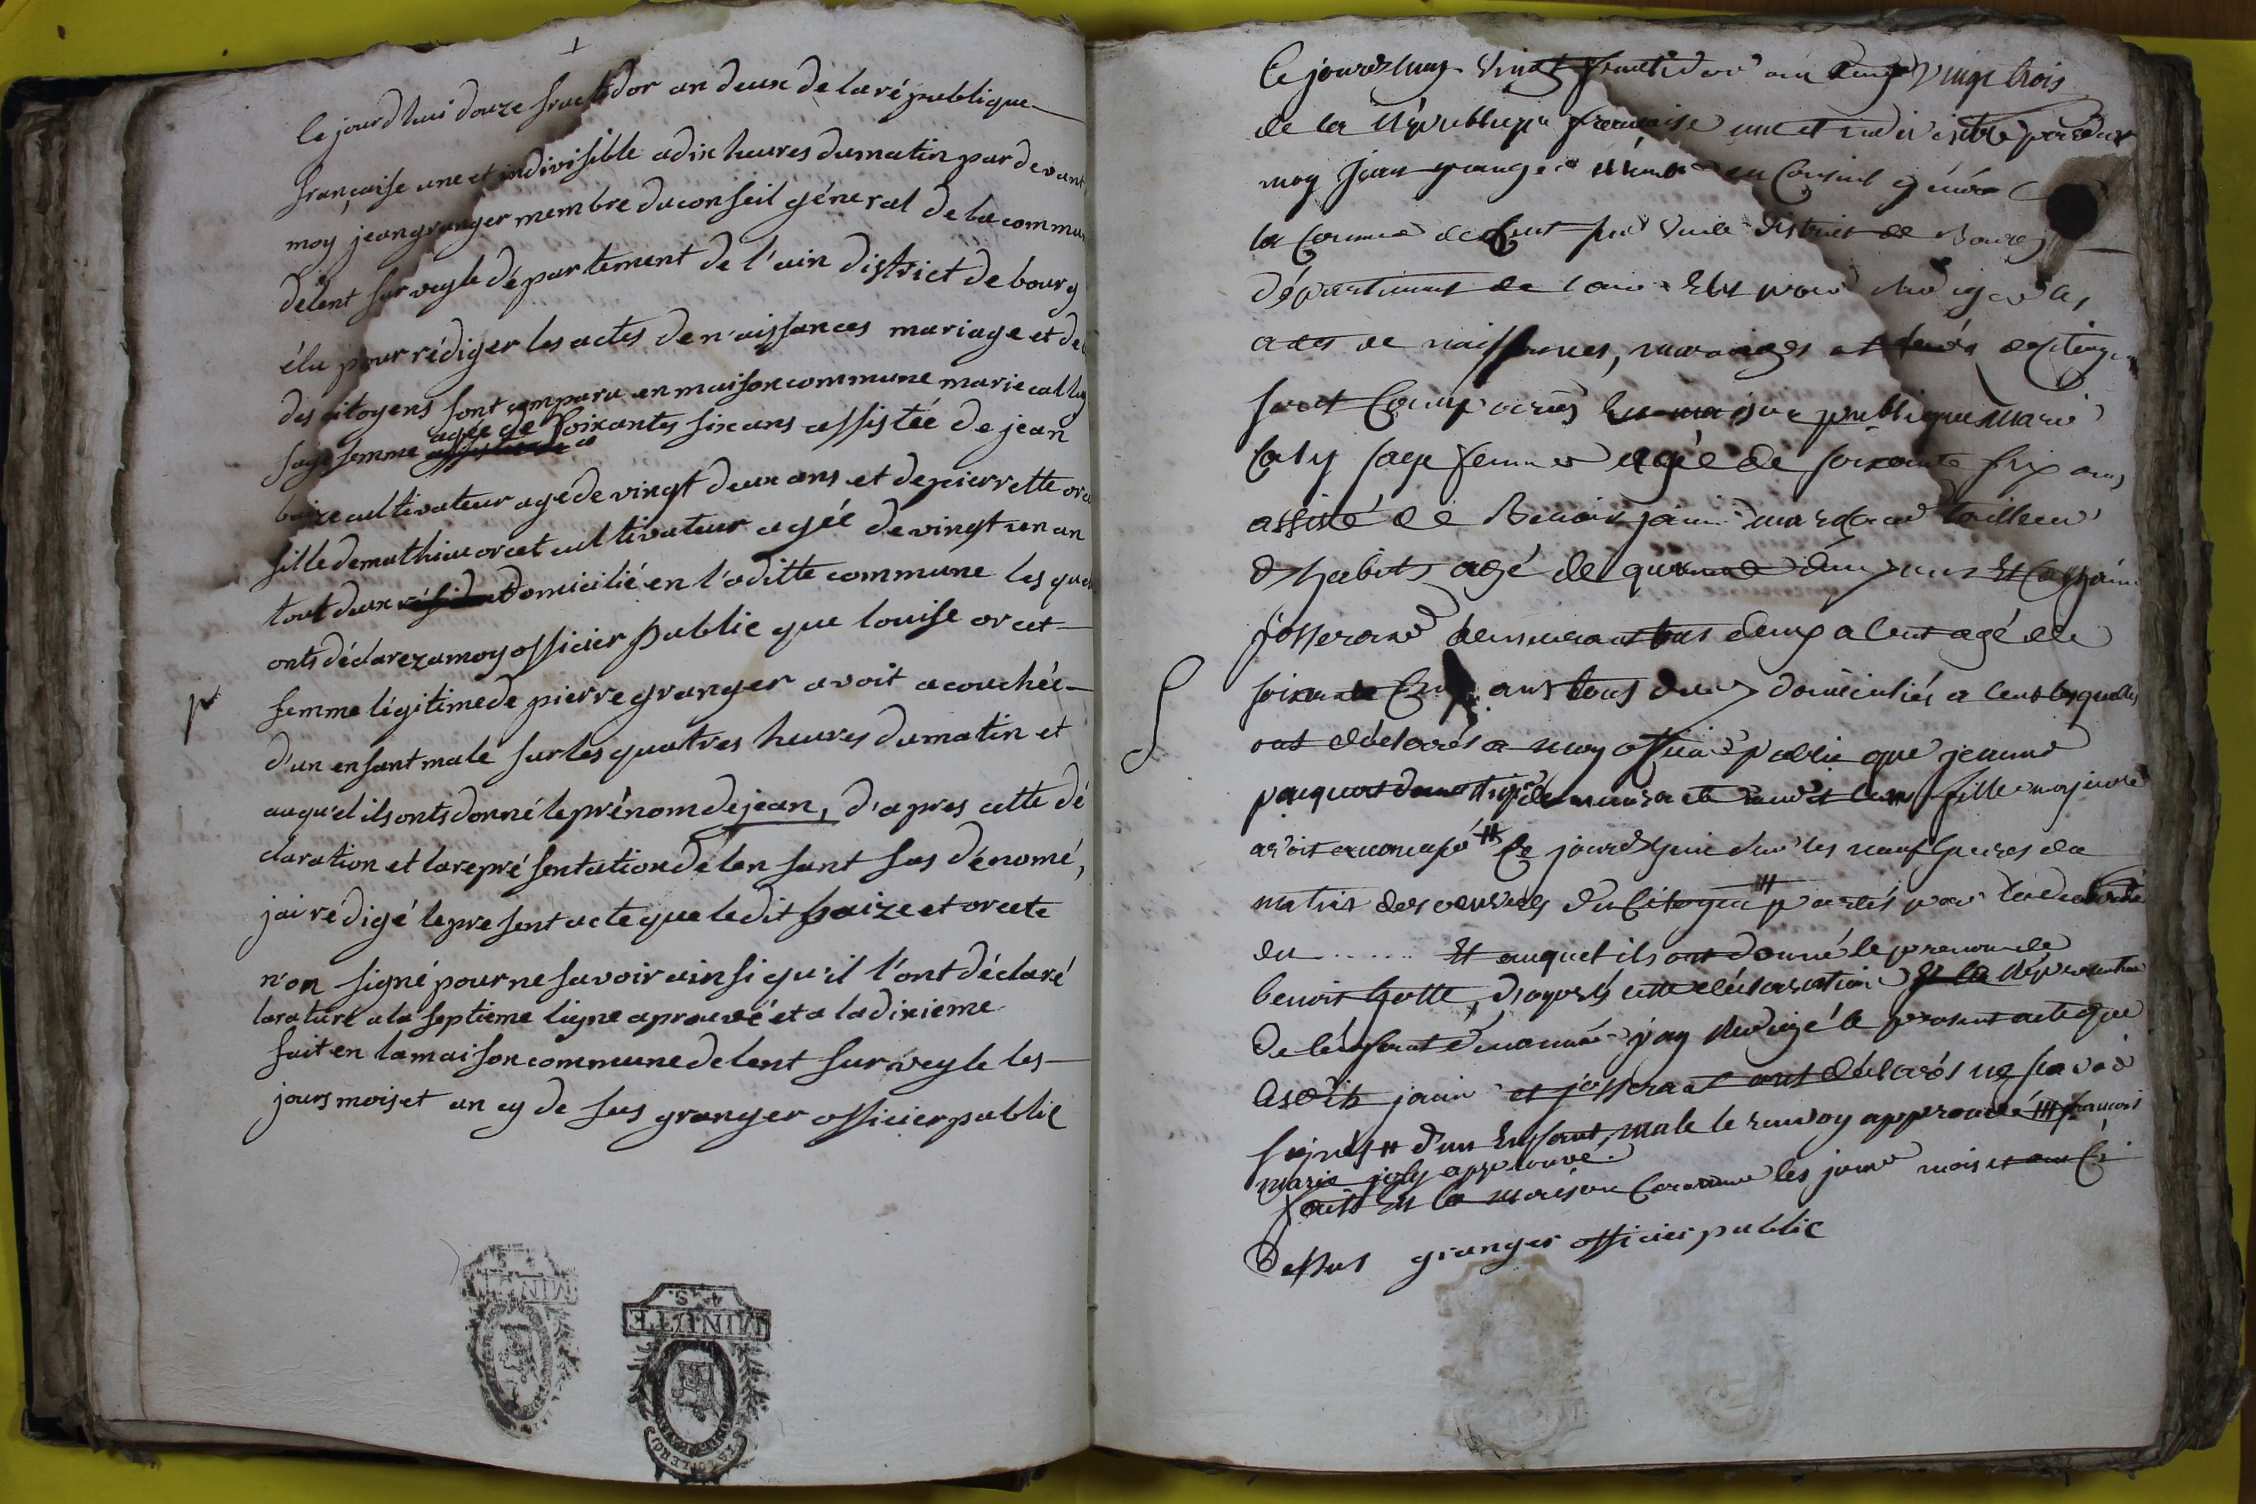 ce jourd'hui douze fructidor an deux de la république
francaise une et indivisible a dix heures du matin par devant
moy jean granger membre du conseil géneral de la commu
delent sur veyle département de l'ain district de bourg
élu pour rédiger les actes de naissances mariage et de
des citoyens sont comparu en maison commune marie cally
sage femme agée de soixantes six ans assistée de jean
baize cultivateur agé de vingt deux ans et de pierrette orc
fille de mathieu orcet cultivateur agée de vingt un an
tout deux domicilié en l'aditte commune les que
onts déclarez a moy officier public que louise orcet
femme légitime de pierre granger avoit acouchée
d'un enfant male sur les quatres heures du matin et
auquel ils onts donné le prénom de jean, d'apres cette dé
claration et la représentation de lenfant sus dénomé,
jai rédigé le present acte que ledit baize et orcete
n'on signé pour ne savoir ainsi qu'il l'ont déclaré
la rature a la septieme ligne aprouvé et a la dixieme
fait en la maison commune delent sur veyle les
jours mois et an cy de sus granger officier public
MINUTE
4 S.
Ce jourdhuy vingt fructidor an deux vingt trois
de la République francaise une et indivisible par devt
moy Jean granger membre du Conseil généra
la Commune de lent sur veile district de Bourg
département de l'ain Elu pour rediger les
actes de naissances, mariages et décés des citoyen
sont Comparus en maison publique Marie
Caly sage femme agée de soixante six ans
assisté de Benoit janin tailleur
d'habits agé de quarante deux ans Et
josserand demeurant tous deux a lent agé de
soixante ans tous deux domiciliés a lent lesquelles
ont déclarés a moy officier public que jeanne
fille majeure
avoit accouché # Ce jourdhuy sur les neuf heures du
matin des oeuvres du Citoyen
du ...... Et auquel ils ont donné le prenom de
benoit hotte, d'après cette déclaration Et la représentation
de l'enfant dénommé j'ay redigé le present acte que
lesdits janin et josserand ont déclarés ne scavoir
signés # d'un Enfant male le renvoy approuvé ### francois
marie joly approuvé.
fait En la maison Commune les jours mois et an Ci
dessus granger officier public